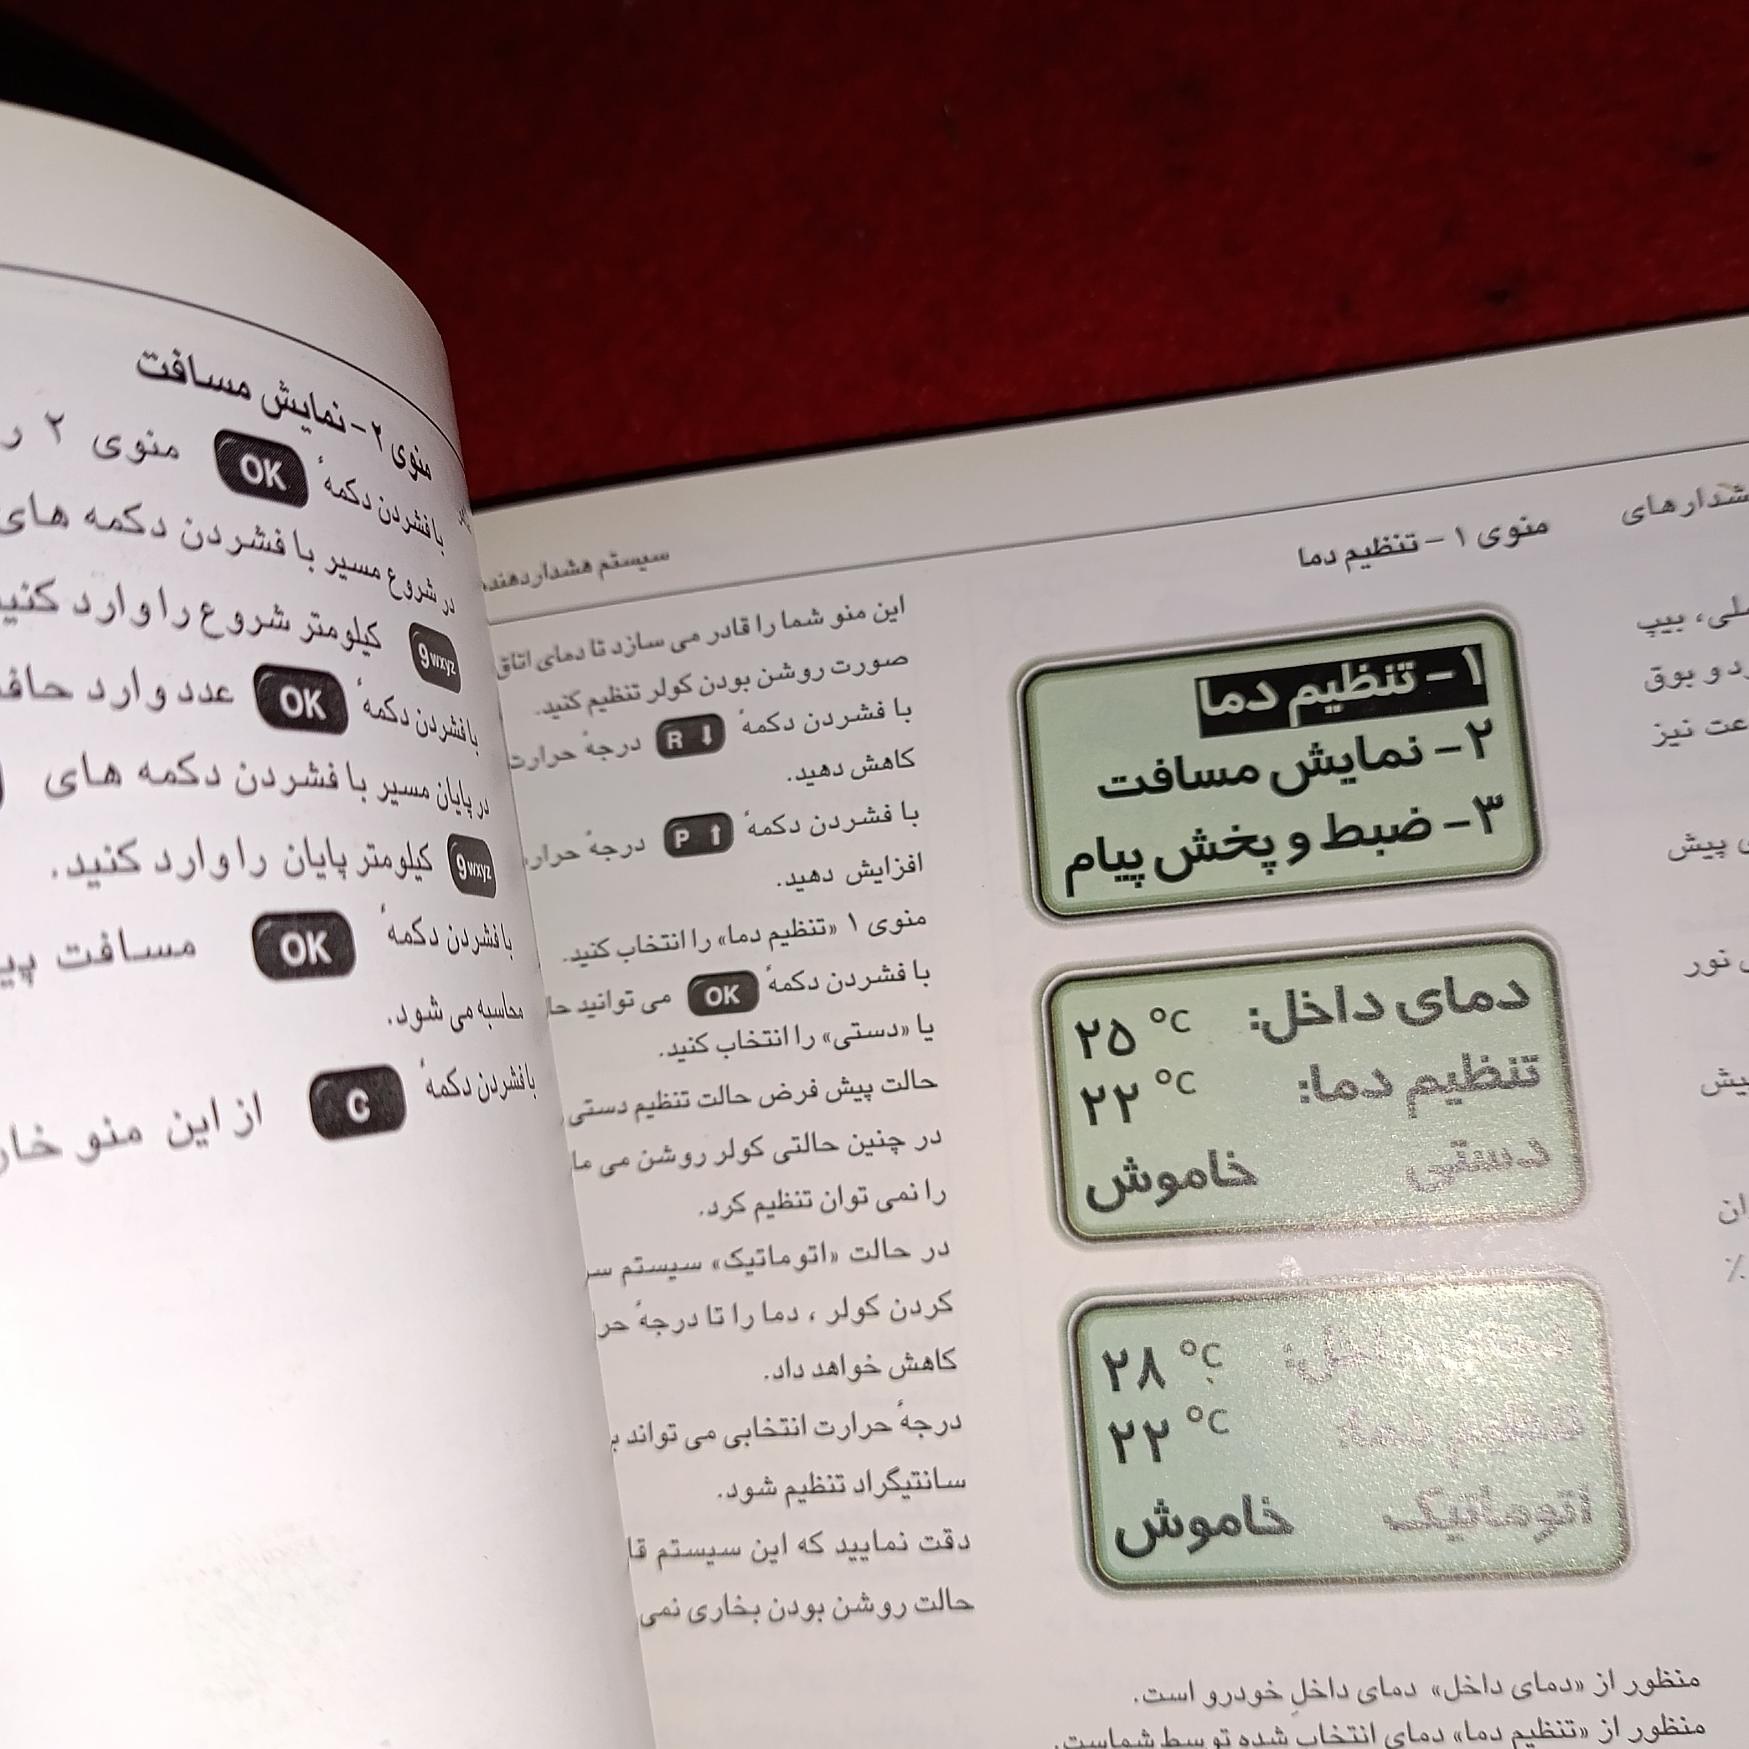 سیستم هشداردهنده
شدارهای
منوی ۱ – تنظیم دما
۱– تنظیم دما
۲– نمایش مسافت
۳– ضبط و پخش پیام
دمای داخل: ۲۵ °C
تنظیم دما: ۲۲ °C
دستی خاموش
دمای داخل: ۲۸ °C
تنظیم دما: ۲۲ °C
اتوماتیک خاموش
منظور از «دمای داخل» دمای داخلِ خودرو است.
منظور از «تنظیم دما» دمای انتخاب شده توسط شماست.
ملی، بیپ
رد و بوق
عت نیز
ی پیش
نور
یش
ان
٪
این منو شما را قادر می سازد تا دمای اتاق
صورت روشن بودن کولر تنظیم کنید.
با فشردن دکمهٔ R ↓ درجهٔ حرارت
کاهش دهید.
با فشردن دکمهٔ P ↑ درجهٔ حرار
افزایش دهید.
منوی ۱ «تنظیم دما» را انتخاب کنید.
با فشردن دکمهٔ OK می توانید حا
یا «دستی» را انتخاب کنید.
حالت پیش فرض حالت تنظیم دستی
در چنین حالتی کولر روشن می ما
را نمی توان تنظیم کرد.
در حالت «اتوماتیک» سیستم سر
کردن کولر ، دما را تا درجهٔ حر
کاهش خواهد داد.
درجهٔ حرارت انتخابی می تواند ب
سانتیگراد تنظیم شود.
دقت نمایید که این سیستم قا
حالت روشن بودن بخاری نمی
منوی ۲ – نمایش مسافت
با فشردن دکمهٔ OK منوی ۲ ر
در شروع مسیر با فشردن دکمه های
9wxyz کیلومتر شروع را وارد کنید
با فشردن دکمهٔ OK عدد وارد حاف
در پایان مسیر با فشردن دکمه های
9wxyz کیلومتر پایان را وارد کنید.
با فشردن دکمهٔ OK مسافت پی
محاسبه می شود.
با فشردن دکمهٔ C از این منو خار